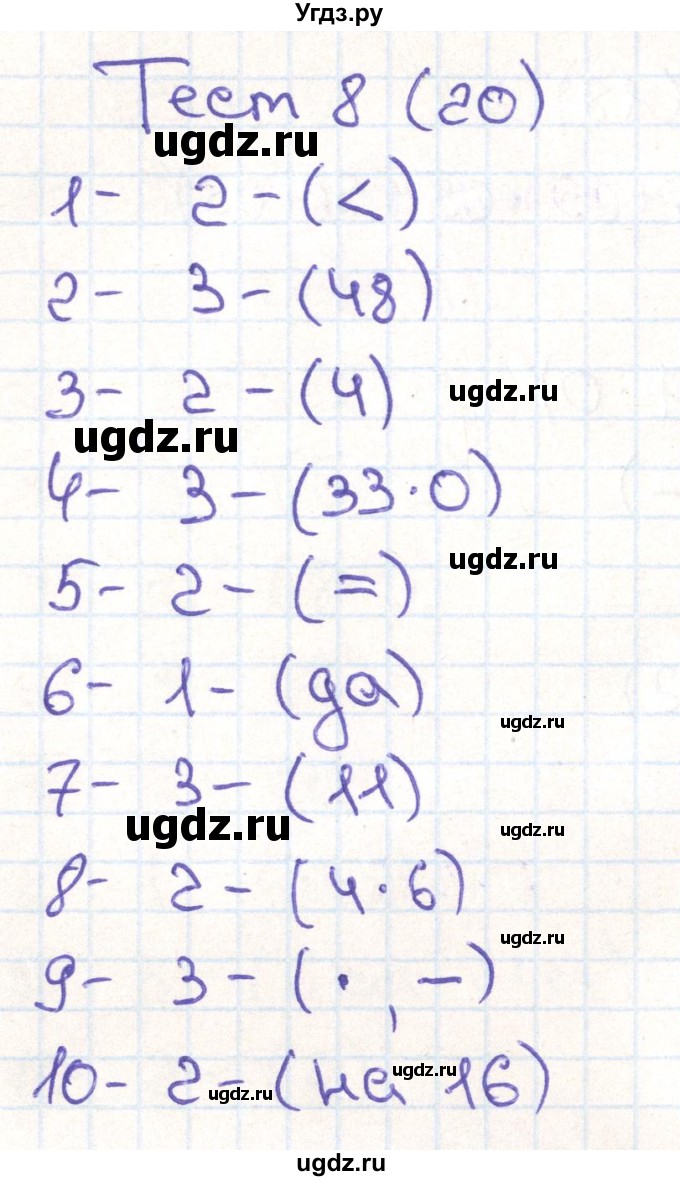 Угдз.ру
Тест 8 (20)
ugdz.ru
1- 2-(<)
2- 3-(48)
3- 2-(4)
ugdz.ru
ugdz.ru
4- 3-(33·0)
ugdz.ru
5- 2-(=)
6- 1-(да)
ugdz.ru
7- 3-(11)
ugdz.ru
ugdz.ru
8- 2-(4·6)
ugdz.ru
9- 3-(·,-)
10- 2-(на 16)
ugdz.ru
ugdz.ru
ugdz.ru